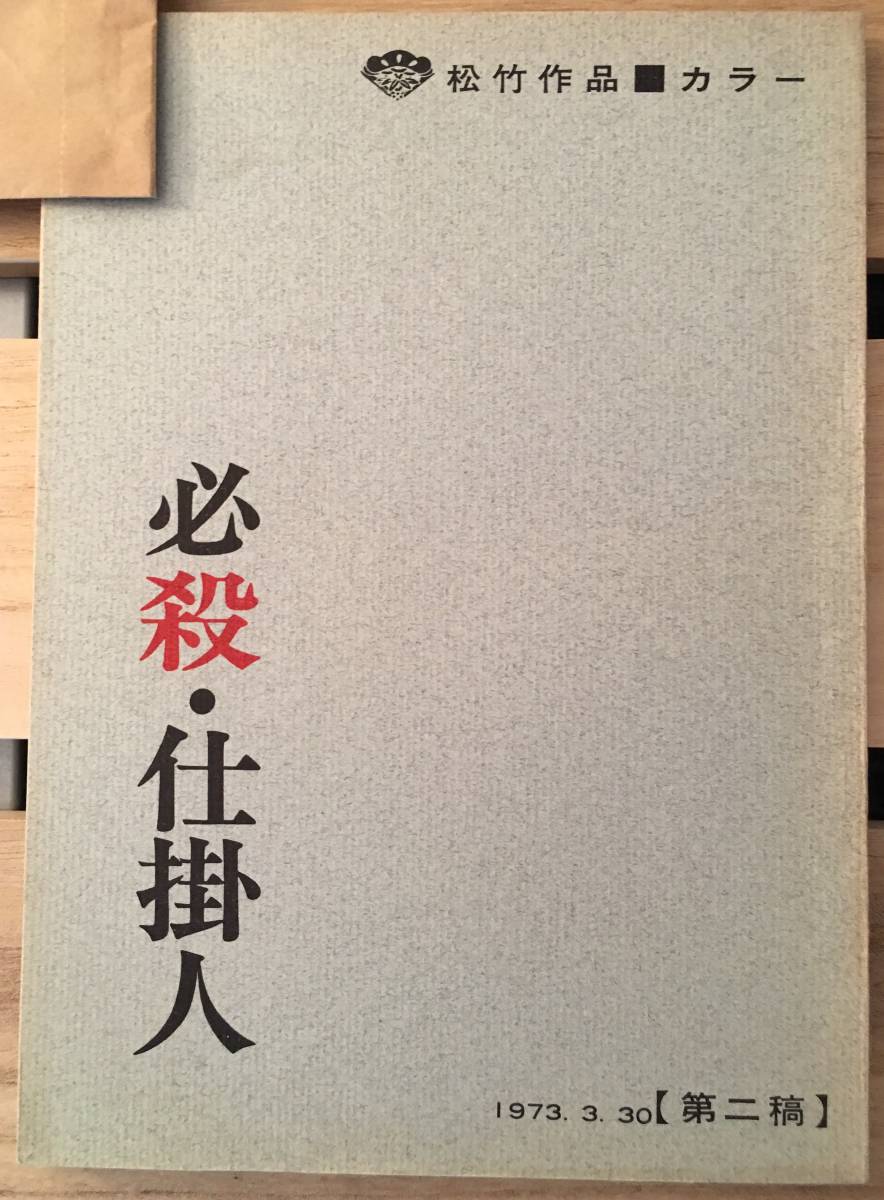 松竹作品■カラー
必殺・仕掛人
1973. 3. 30【第二稿】